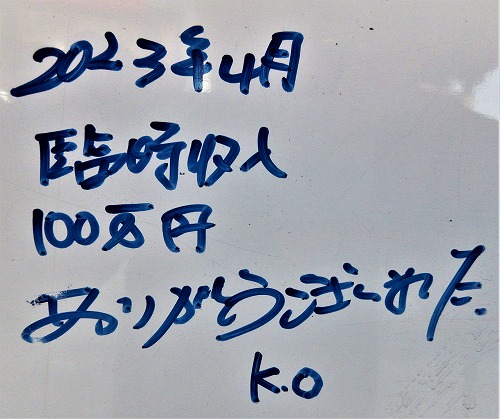 2023年4月
臨時収入
100万円
ありがとうございました
K.O